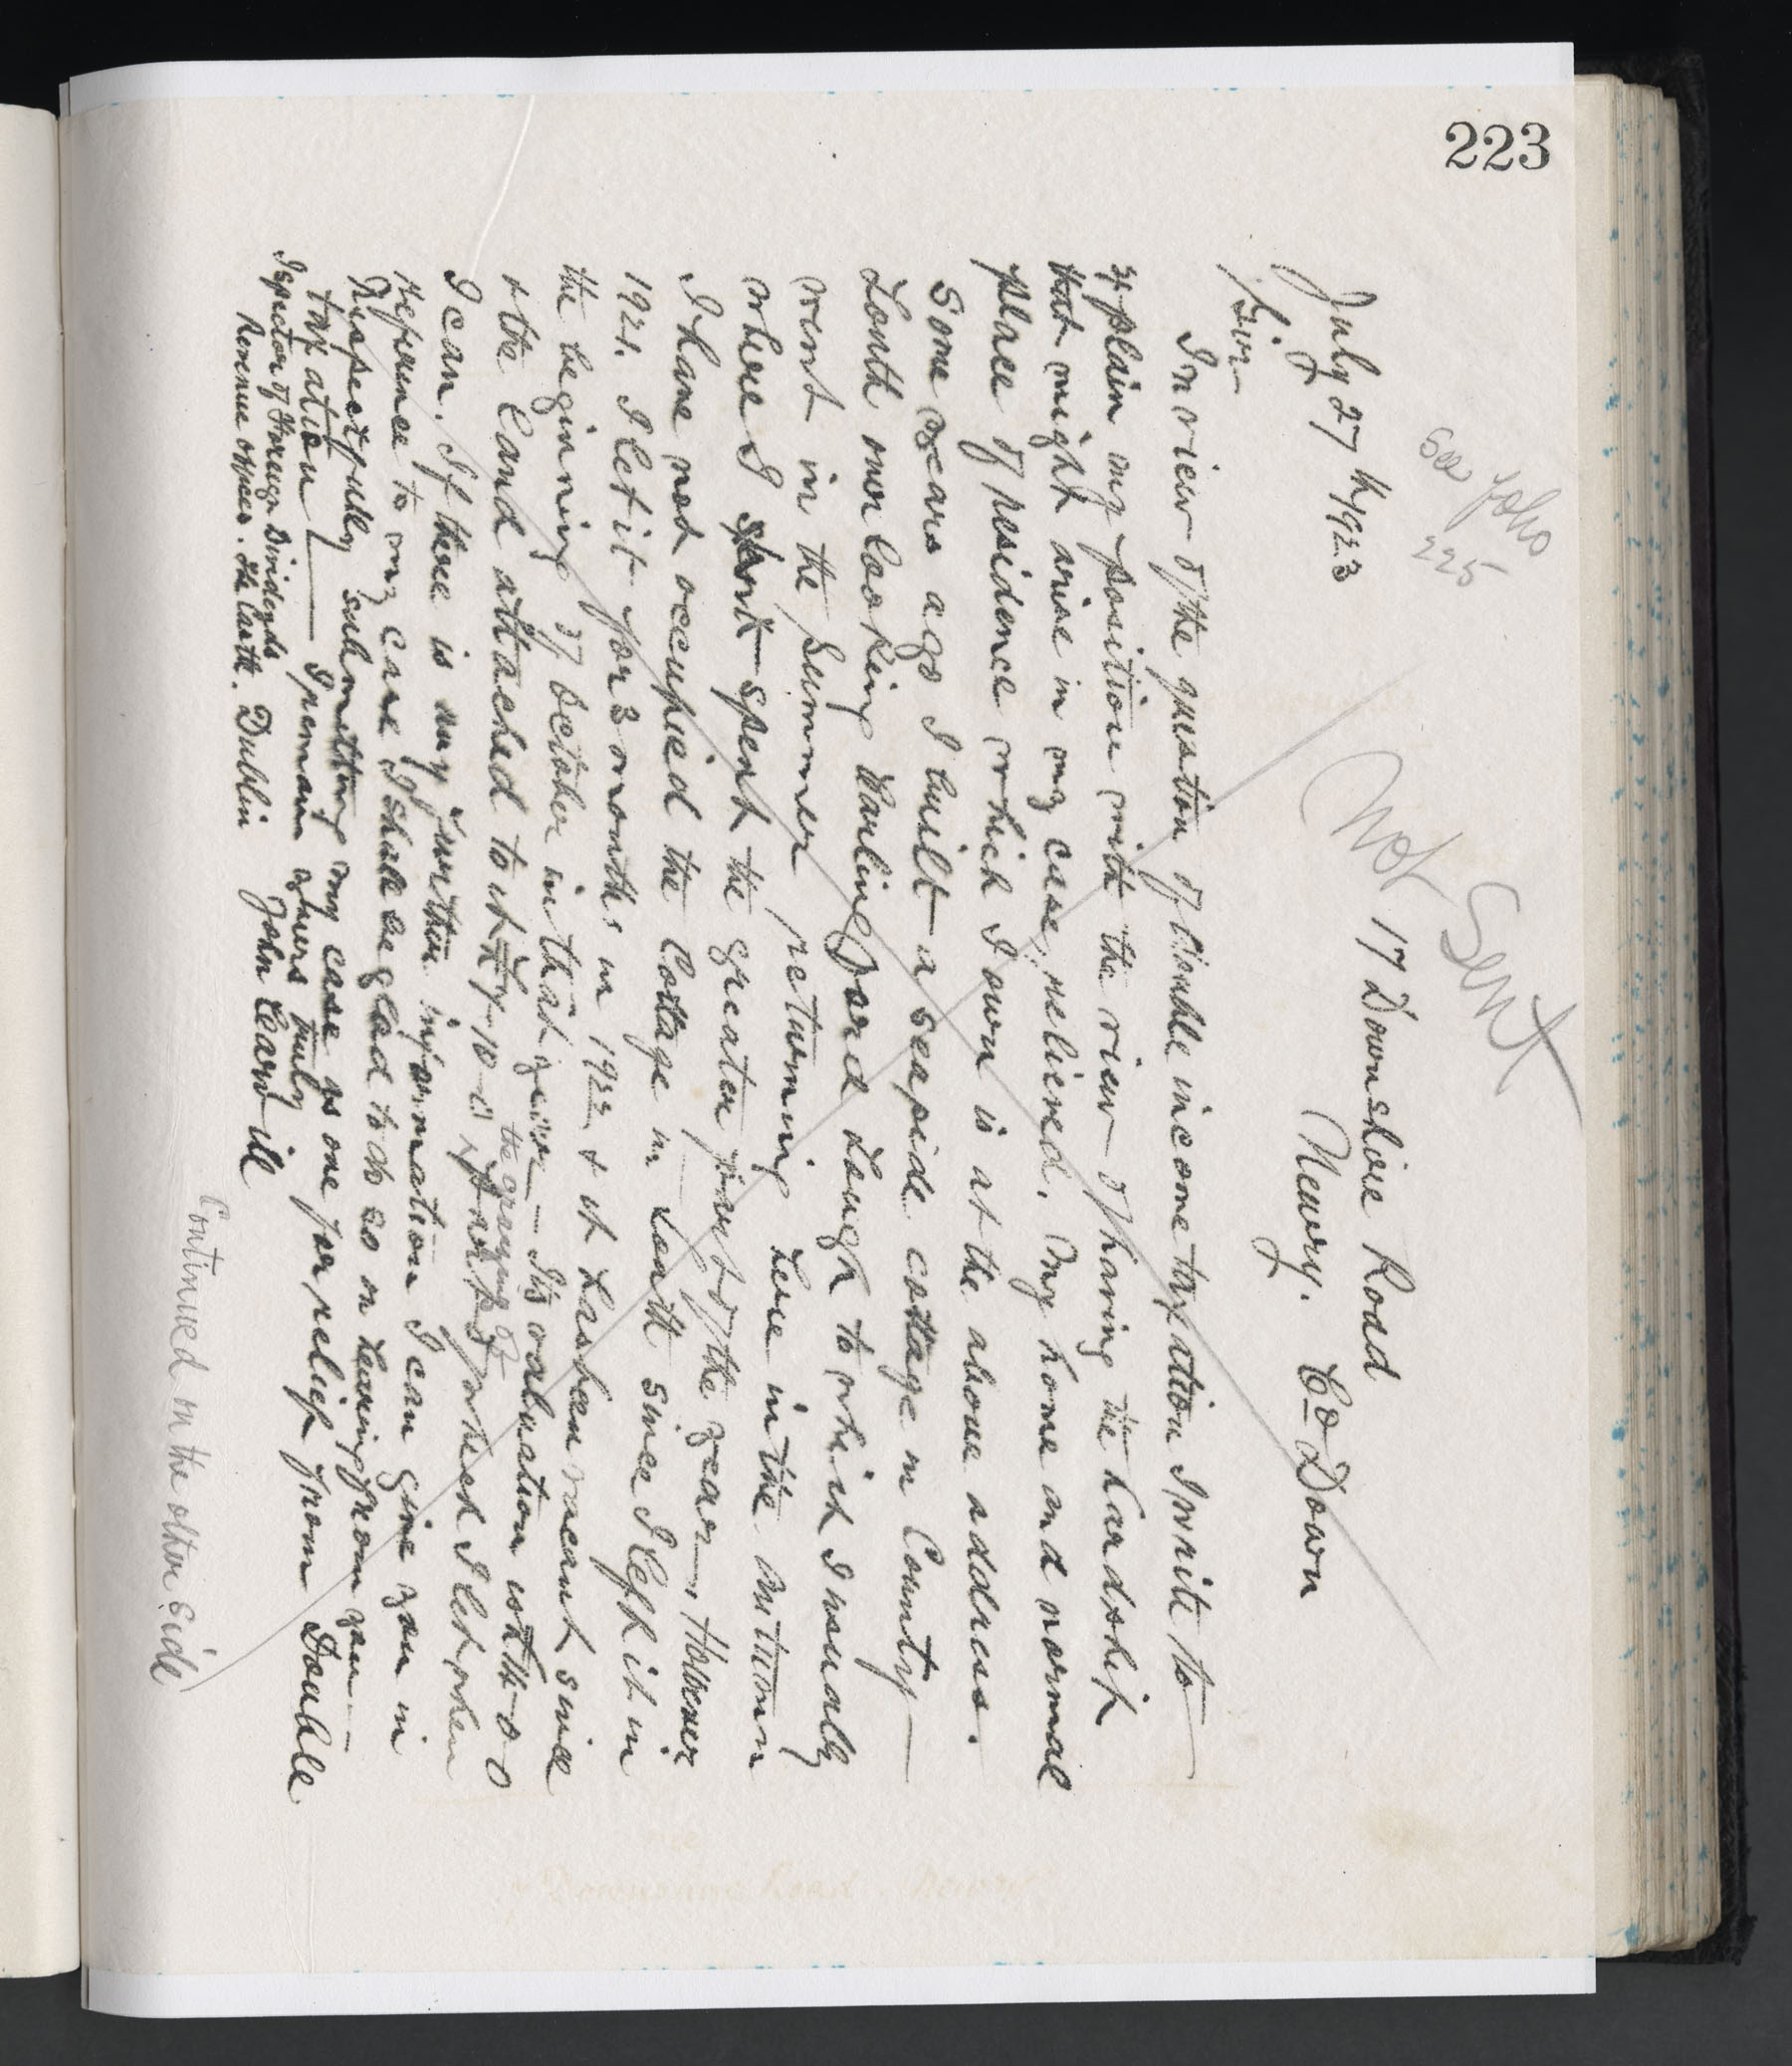 223
See folio
225
Not Sent
17 Downshire Road
July 27th 1923 Newry. Co Down
Sir
In view of the question of double income taxation I write to
explain my position with the view of having the hardship
that might arise in my case, relieved. My home and normal
place of residence which I own is at the above address.
Some years ago I built a seaside cottage in County
Louth overlooking Carlingford Lough to which I usually
went in the Summer returning here in the Autumn
where I spent the greater part of the year. However
I have not occupied the Cottage in Louth since I left it in
1921. I let it for 3 months in 1922 & it has been vacant since
the beginning of October in that year — Its valuation with
the grazing of
& the land attached to it when I let when
I can. If there is any further information I can give you in
reference to my case I shall be glad to do so on hearing from you —
Respectfully submitting my case as one for relief from Double
taxation I remain yours truly
Ispector of Foreign Dividends John Leard ill
Revenue offices. The Castle. Dublin
Continued on the other side